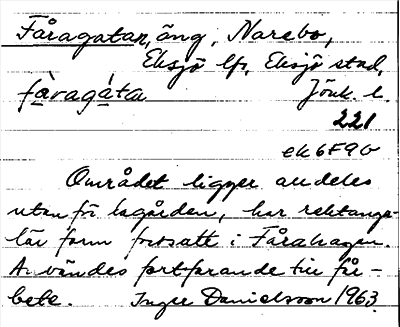 Fåragatan, äng, Narebo,
Eksjö lfs, Eksjö stad,
fåragáta Jönk. l.
221
ek 6F9b
Området ligger alldeles
utanför lagården, har rektangu-
lär form fortsatt i Fårahagen.
Användes fortfarande till får-
bete. Inger Danielsson 1963.